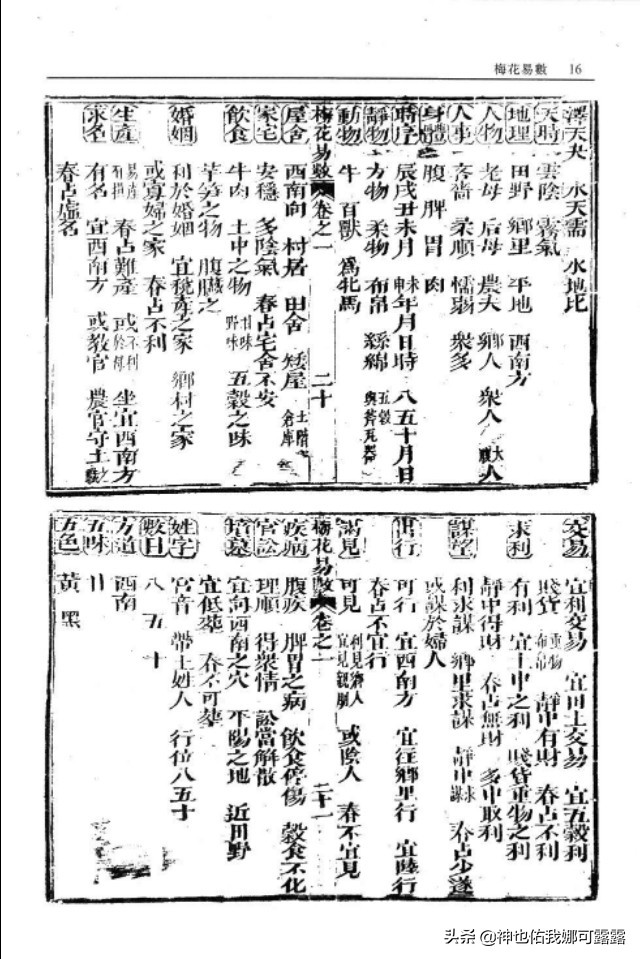 梅花易數 16
澤天夬 水天需 水地比
天時 雲陰 霧氣
地理 田野 鄉里 平地 西南方
人物 老母 后母 農夫 鄉人 衆人 大腹人
人事 吝嗇 柔順 懦弱 衆多
身體 腹 脾 胃 肉
時序 辰戌丑未月 未申年月日時 八五十月日
靜物 方物 柔物 布帛 絲綿 五穀 輿斧瓦器
動物 牛 百獸 爲牝馬
梅花易數 卷之一 二十
屋舍 西南向 村居 田舍 矮屋 土階 倉庫
家宅 安穩 多陰氣 春占宅舍不安
飲食 牛肉 土中之物 甘味 野味 五穀之味
芋筍之物 腹臟之
婚姻 利於婚姻 宜稅產之家 鄉村之家
或寡婦之家 春占不利
生產 易產 春占難產 或不利於母 坐宜西南方
求名 有名 宜西南方 或教官 農官守土之職
春占虛名
交易 宜利交易 宜田土交易 宜五穀利
賤貨 重物 布帛 靜中有財 春占不利
求利 有利 宜土中之利 賤貨重物之利
靜中得財 春占無財 多中取利
謀望 利求謀 鄉里求謀 靜中求謀 春占少遂
或謀於婦人
出行 可行 宜西南方 宜往鄉里行 宜陸行
春占不宜行
謁見 可見 利見鄉人 宜見親朋 或陰人 春不宜見
梅花易數 卷之一 二十一
疾病 腹疾 脾胃之病 飲食停傷 穀食不化
官訟 理順 得衆情 訟當解散
墳墓 宜向西南之穴 平陽之地 近田野
宜低葬 春不可葬
姓字 宮音 帶土姓人 行位八五十
數目 八 五 十
方道 西南
五味 甘
五色 黃 黑
头条 @神也佑我娜可露露